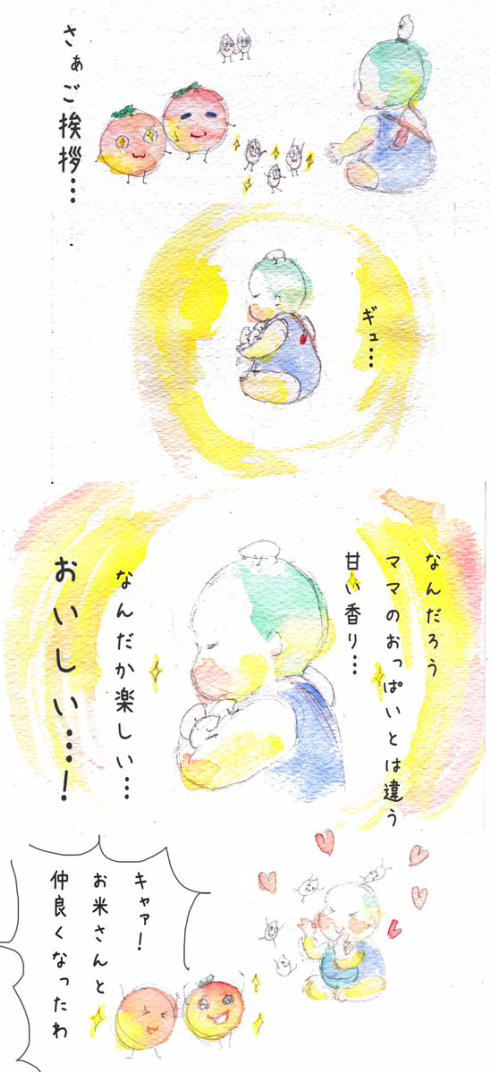 さぁご挨拶…
ギュ…
なんだろう
ママのおっぱいとは違う
甘い香り…
なんだか楽しい…
おいしい…！
キャァ！
お米さんと
仲良くなったわ